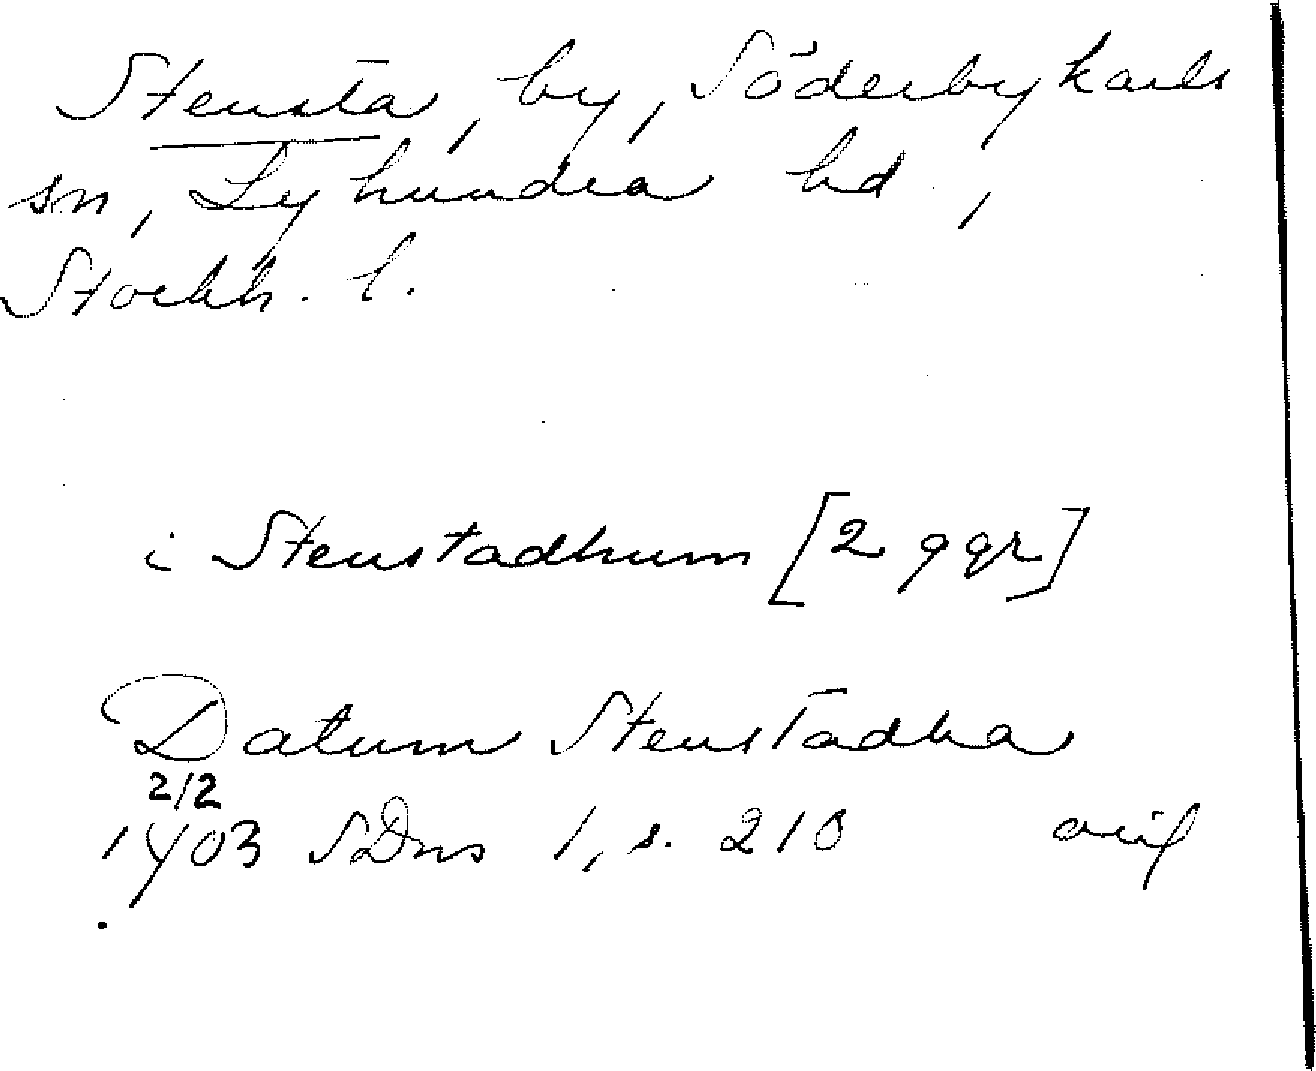 Stensta, by, Söderbykarls
sn, Lyhundra hd,
Stockh. l.
i Stenstadhum [2 ggr]
Datum Stenstadha
2/2
1403 SDns 1, s. 210